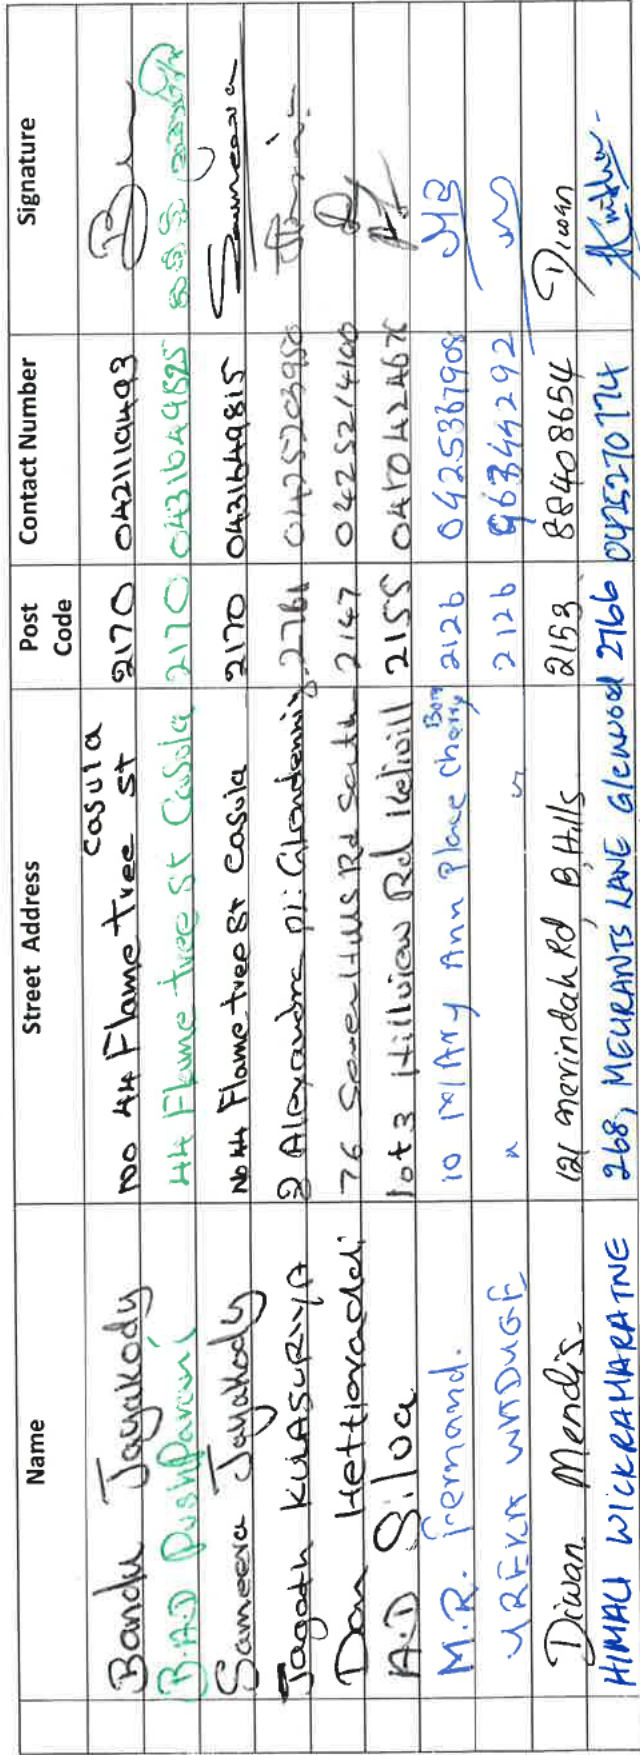 Name Street Address Post Code Contact Number Signature
Bandu Jayakody No 44 Flame tree st Casula 2170 0421119493
B.A.D Pushparani 44 Flame tree st Casula 2170 0431649825
Sameera Jayakody No 44 Flame tree St Casula 2170 0431649815 Sameera
Jagath KULASURIYA 2 Alexandra pl: Glendenning 2761 0425203950
Dan Hettiaraddi 76 Seven Hills Rd South 2147 0425214100
A.D Silva lot 3 Hillview Rd Kellvill 2155
M.R. Fernand. 10 MARY Ann Place Cherry 2126 0425367908
2126 96344292
Diwan Mendis. 121 Merindah Rd, B, Hills 2153 88408654 Diwan
HIMALI WICKRAMARATNE 268, MEURANTS LANE Glenwood 2766 0425270774